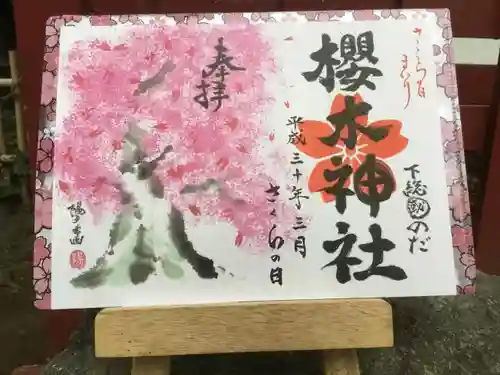 さくら日
まいり
櫻木神社
下総
のだ
奉拝
平成三十年三月
さくらの日